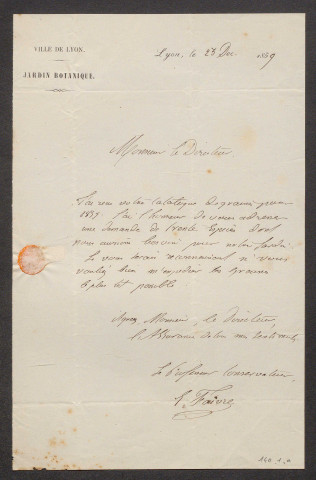 VILLE DE LYON.
JARDIN BOTANIQUE.
Lyon, le 28 Dec 1859
Monsieur le Directeur
J'ai reçu votre Catalogue de graines pour
1859. J'ai l'honneur de vous adresser
une demande de trente espèces dont
nous aurions besoin pour notre Jardin.
Je vous serais reconnaissant si vous
vouliez bien m'expédier les graines
le plus tôt possible
Agréez Monsieur le Directeur,
l'assurance de
Le Professeur Conservateur
E. Faivre